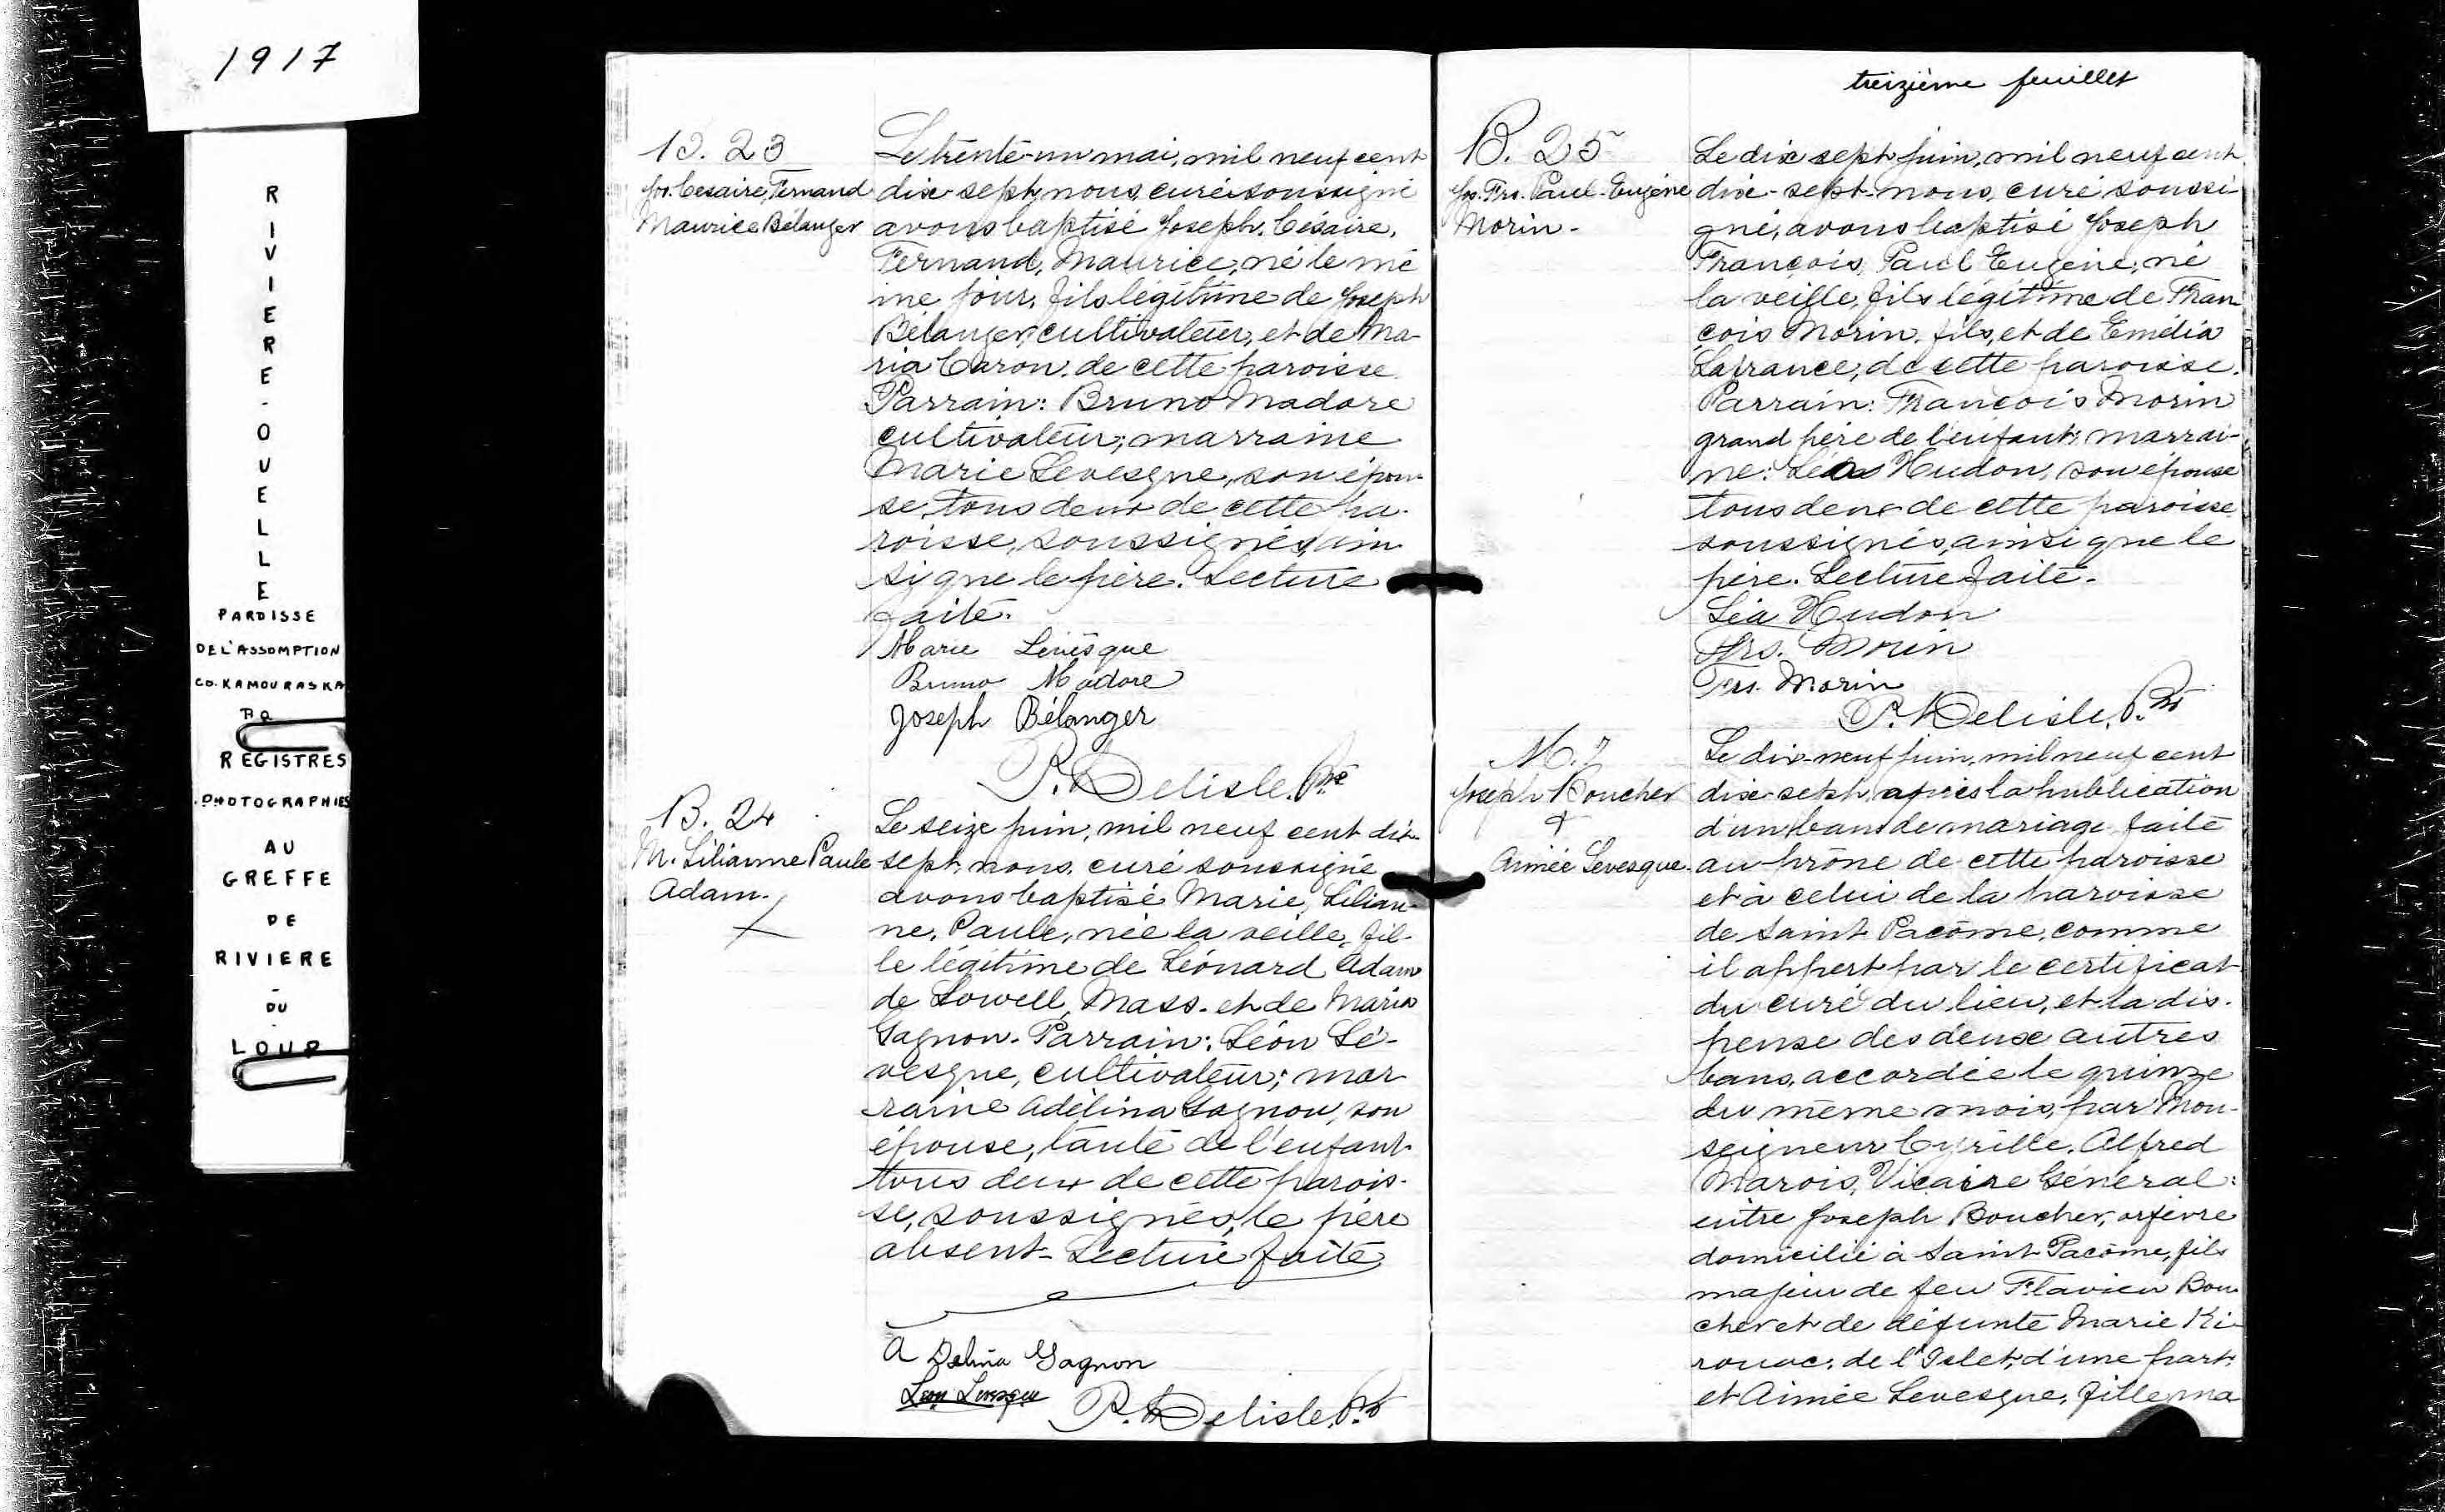 1917
RIVIERE-OUELLE
PAROISSE
DE L'ASSOMPTION
CO. KAMOURASKA
PQ
REGISTRES
PHOTOGRAPHIES
AU
GREFFE
DE
RIVIERE
-
DU
-
LOUP
B. 23
Jos. Cesaire, Fernand
Maurice Bélanger
Le trente-un mai, mil neuf cent
dix-sept, nous, curé soussigné
avons baptisé Joseph, Césaire,
Fernand, Maurice, né le mê
me jour, fils légitime de Joseph
Bélanger, cultivateur, et de Ma-
ria Caron, de cette paroisse.
Parrain: Bruno Madore
cultivateur; marraine
Marie Levesque, son épou-
se, tous deux de cette pa-
roisse, soussignés, ain
si que le père. Lecture
faite.
Marie Lévèsque
Bruno Madore
Joseph Bélanger
P. Delisle, Ptre
B. 24
M. Lilianne Paule
Adam.
Le seize juin, mil neuf cent dix-
sept, nous, curé soussigné
avons baptisé Marie, Lilian-
ne, Paule, née la veille, fil-
le légitime de Léonard Adam
de Lowell, Mass. et de Maria
Gagnon. Parrain: Léon Lé-
vesque, cultivateur; mar
raine Adélina Gagnon, son
épouse, tante de l'enfant
tous deux de cette parois-
se, soussignés, le père
absent. Lecture faite
A Delina Gagnon
Leon Levesque
P. Delisle, Ptr
treizième feuillet
B. 25
Jos. Frs. Paul-Eugène
Morin.
Le dix sept juin, mil neuf cent
dix-sept, nous, curé soussi
gné, avons baptisé Joseph
François, Paul Eugène, né
la veille, fils légitime de Fran
çois Morin, fils, et de Emélia
Lafrance, de cette paroisse.
Parrain: François Morin
grand père de l'enfant; marrai-
ne: Léa Hudon, son épouse
tous deux de cette paroisse
soussignés, ainsi que le
père. Lecture faite.
Léa Hudon
Frs. Morin
Frs. Morin
P. Delisle, Ptr
M. 7
Joseph Boucher
&
Aimée Levesque.
Le dix-neuf juin, mil neuf cent
dix-sept, après la publication
d'un ban de mariage faite
au prône de cette paroisse
et à celui de la paroisse
de Saint Pacôme, comme
il appert par le certificat
du curé du lieu, et la dis-
pense des deux autres
bans, accordée le quinze
du même mois, par Mon-
seigneur Cyrille, Alfred
Marois, Vicaire Général:
entre Joseph Boucher, orfèvre
domicilié à Saint Pacôme, fils
majeur de feu Flavien Bou-
cher et de défunte Marie Ki-
rouac, de l'Islet, d'une part;
et Aimée Levesque, fille ma